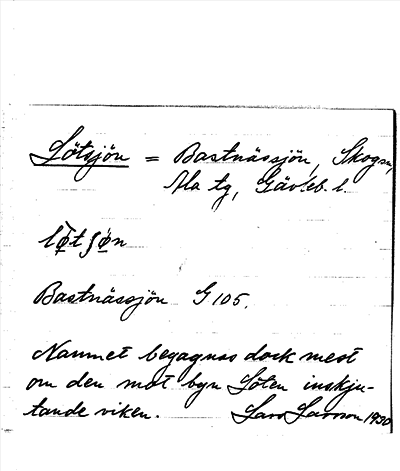 Lötsjön = Bastnässjön, Skogsn,
Ala tg, Gävleb. l.
lø̀tʃø̀n
Bastnässjön G 105.
Namnet begagnas dock mest
om den mot byn Löten inskju-
tande viken. Lars Larsson 1930